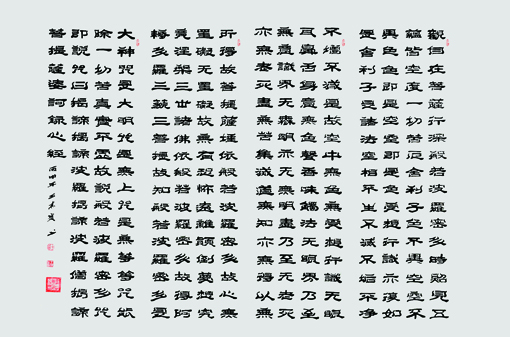 觀自在菩薩行深般若波羅密多時照見五
蘊皆空度一切苦厄舍利子色不異空空不
異色色即是空空即是色受想行識亦復如
是舍利子是諸法空相不生不滅不垢不净
不增不減是故空中無色無受想行識无眼
耳鼻舌身意無色聲香味觸法无眼界乃至
無意識界无無明亦无無明盡乃至无老死
亦無老死盡無苦集滅道無知亦無得以無
所得故菩提薩埵依般若波羅密多故心無
罣礙无罣礙故無有恐怖遠離顛倒夢想究
竟涅槃三世諸佛依般若波羅密多故得阿
耨多羅三藐三菩提故知般若波羅密多是
大神咒是大明咒是無上咒是無等等咒能
除一切苦真實不虛故說般若波羅密多咒
即說咒曰揭諦揭諦波羅揭諦波羅僧揭諦
菩提薩婆訶錄心經
丙申年